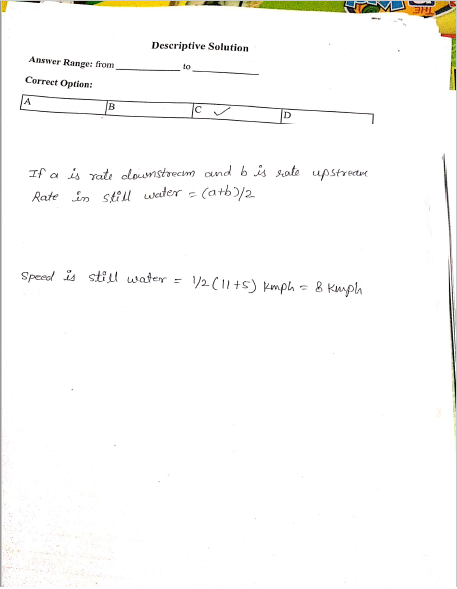 Descriptive Solution
Answer Range: from ____________ to ____________
Correct Option:
A B C ✓ D
If a is rate downstream and b is rate upstream
Rate in still water = (a+b)/2
Speed is still water = 1/2(11+5) kmph = 8 kmph